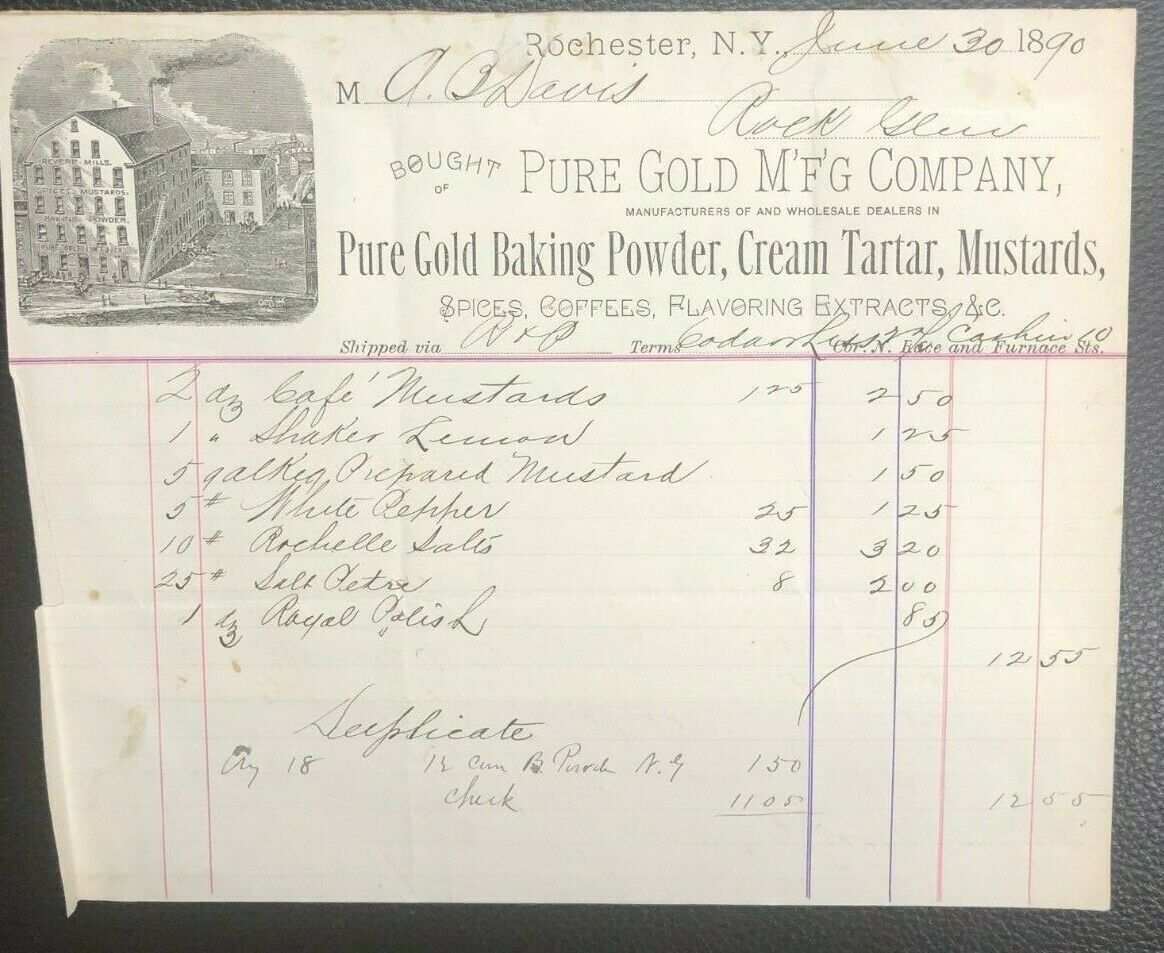 Rochester, N.Y., June 30 1890
M A. B. Davis
Rock Glen
BOUGHT OF PURE GOLD M'F'G COMPANY,
MANUFACTURERS OF AND WHOLESALE DEALERS IN
Pure Gold Baking Powder, Cream Tartar, Mustards,
SPICES, COFFEES, FLAVORING EXTRACTS, &C.
Shipped via Terms 60 days or less 2% Cash in 10
Cor. N. Race and Furnace Sts.
REVERE MILLS.
SPICES, MUSTARDS,
BAKING POWDER,
2 dz Café Mustards 125 2 50
1 " Shaker Lemon 1 25
5 gal Keg Prepared Mustard 1 50
5 # White Pepper 25 1 25
10 # Rochelle Salts 32 3 20
25 # Salt Petre 8 2 00
1 dz Royal Polish 85
12 55
Duplicate
Aug 18 12 B. Powder N.G 1 50
Check 11 05 12 55